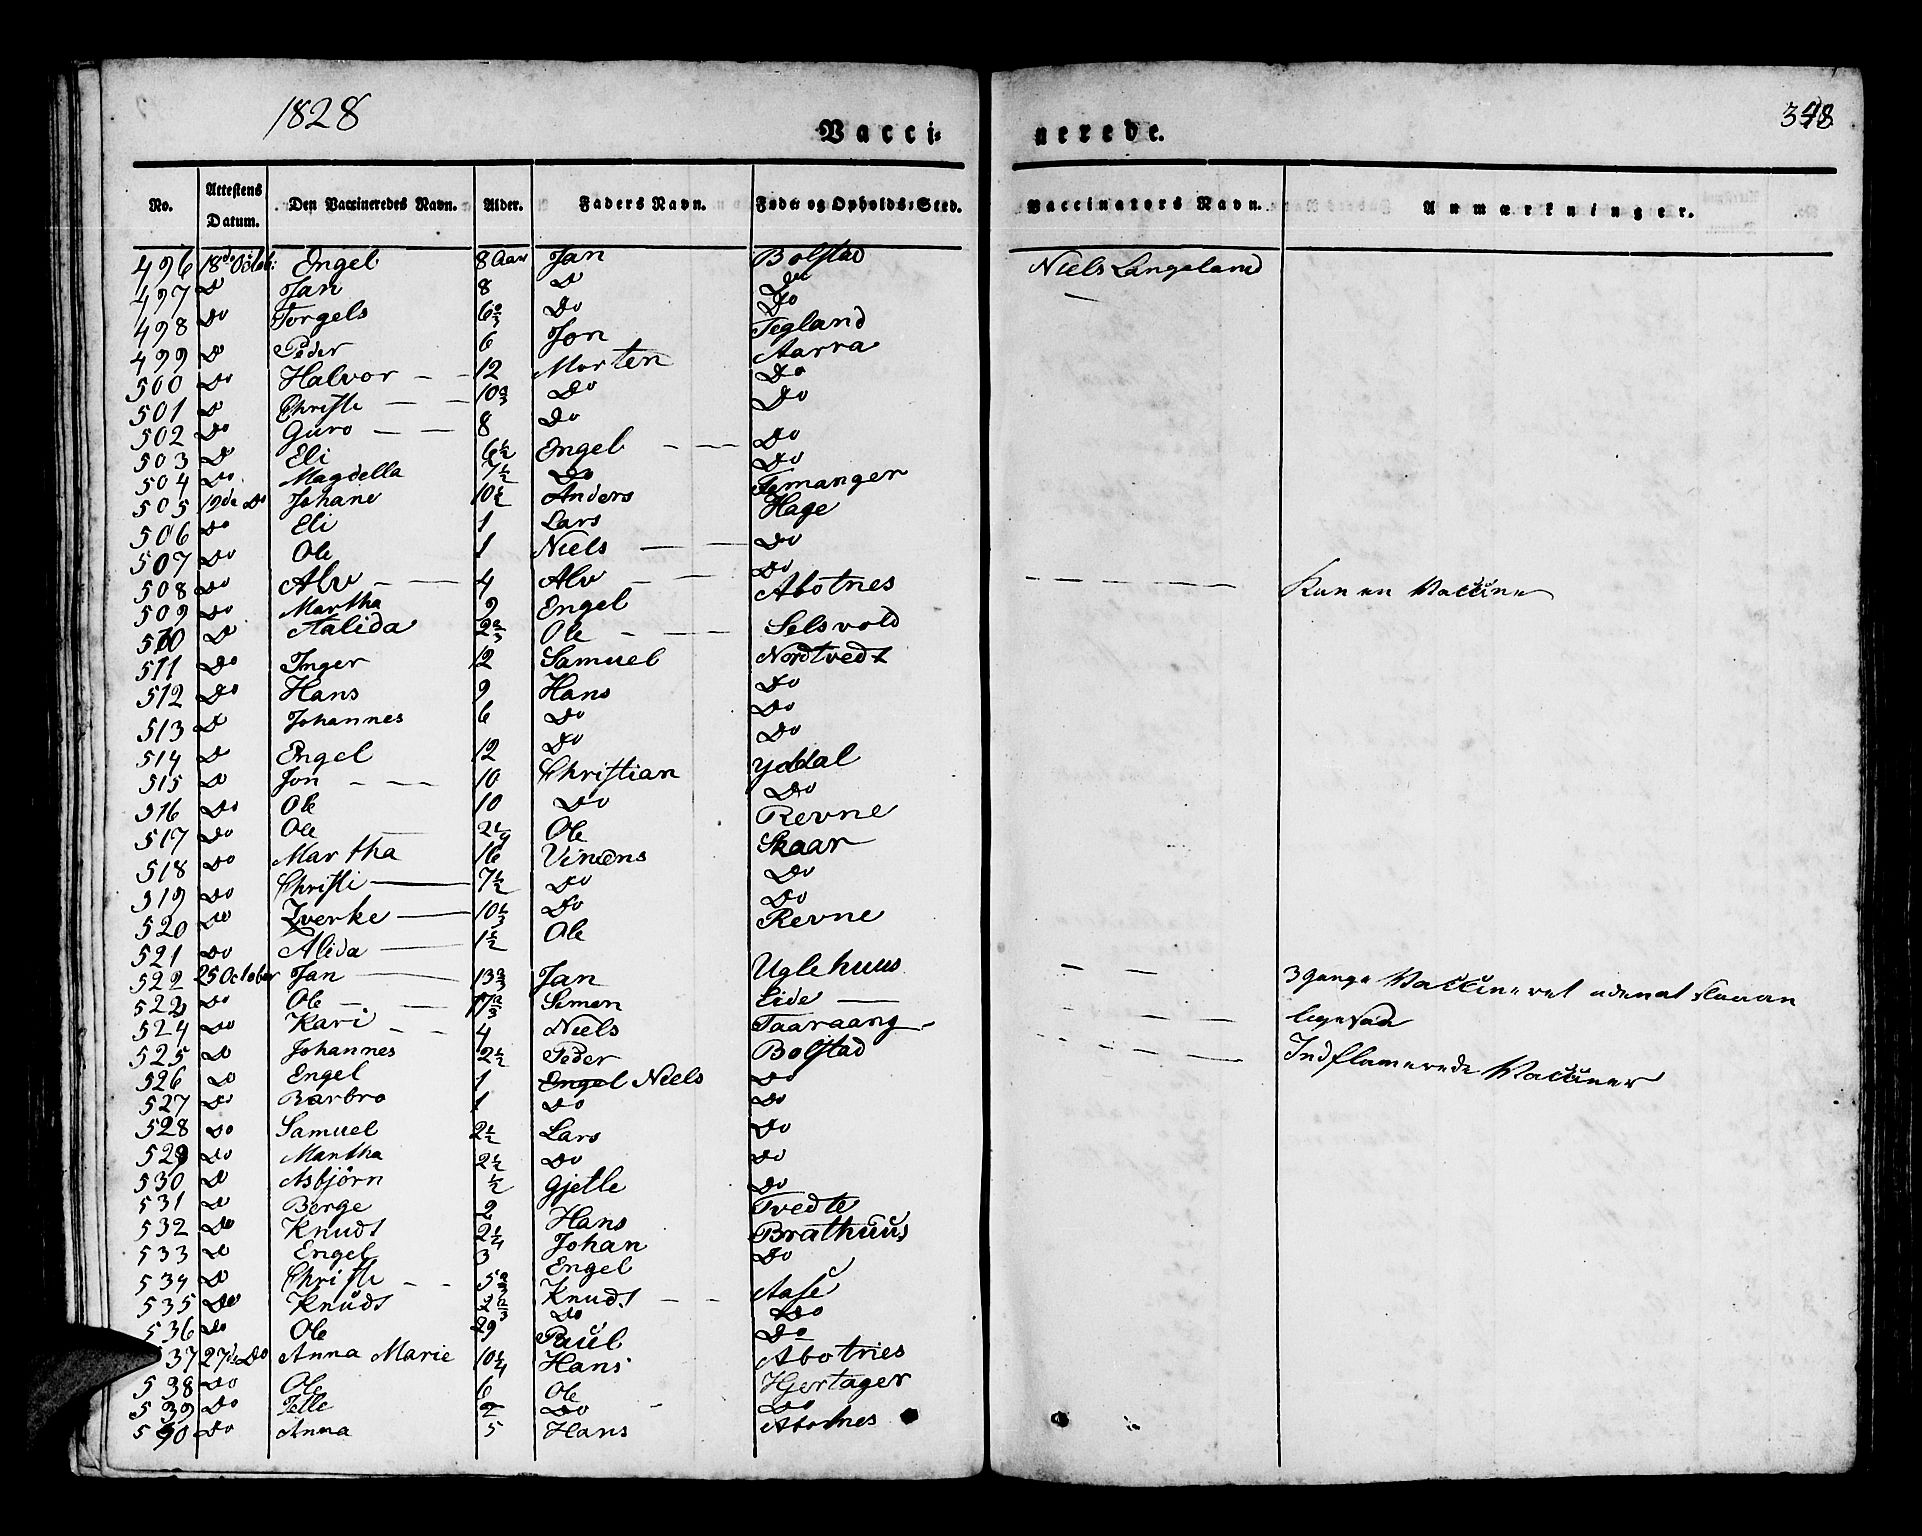 1828
Vacci-
nerede.
348
No. Attestens Datum. Den Vaccineredes Navn. Alder. Faders Navn. Føde- og Opholds-Sted. Vaccinators Navn. Anmærkninger.
496 18de Octob: Engel 8 Aar Jan Bolstad Niels Langeland
497 Do Jan 8 Do Do —
498 Do Torgels 6 2/3 Do Do
499 Do Peder 6 Jon Tegland
500 Do Halvor — — 12 Morten Aarra
501 Do Christi — — 10 2/3 Do Do
502 Do Guro — — 8 Do Do
503 Do Eli 6 1/2 Engel — — Do
504 Do Magdella 7 1/2 Do Do
505 19de Do Johane 10 1/2 Anders Femanger
506 Do Eli 1 Lars Hage
507 Do Ole 1 Niels — — Do
508 Do Alv — — 4 Alv — — Do — — — — Kun en Vaccine
509 Do Martha 9 Engel Abotnes
510 Do Aalida 2 2/3 Ole — — Selsvold
511 Do Inger 12 Samuel Nordtvedt
512 Do Hans 9 Hans Do
513 Do Johannes 6 Do Do
514 Do Engel 12 Do Do
515 Do Jon — — 10 Christian Yddal
516 Do Ole 10 Do Do
517 Do Ole — 2 1/4 Ole Revne
518 Do Martha 16 Vincens Skaar
519 Do Christi — 7 1/2 Do Do
520 Do Zverke — 10 1/3 Do Do
521 Do Alida — 1 1/2 Ole Revne
522 25 October Jan — 13 2/3 Jan Uglehuus — — — 3 gange Vaccineret uden at
522 Do Ole — — 17 2/3 Simen Eide —
524 Do Kari — — 4 Niels Taaraang — — — —
525 Do Johannes 2 1/2 Peder Bolstad — — — — Indflamerede Vacciner
526 Do Engel 1 Engel Niels Do
527 Do Barbro 1 Do Do
528 Do Samuel 2 1/2 Lars Do
529 Do Martha 2 1/2 Do Do
530 Do Asbjörn 1/2 Gjetle Do
531 Do Berge 2 Hans Tvedte
532 Do Knudt 2 1/4 Johan Brathuus
533 Do Engel 3 Engel Do
534 Do Christi — — 5 2/3 Knudt — — Aase
535 Do Knuds 2 2/3 Do Do
536 Do Ole 29 Paul Do
537 27de Do Anna Marie 10 1/4 Hans Abotnes
538 Do Ole 6 Ole Hjertager
539 Do 2 Do Do
540 Do Anna 5 Hans Abotnes